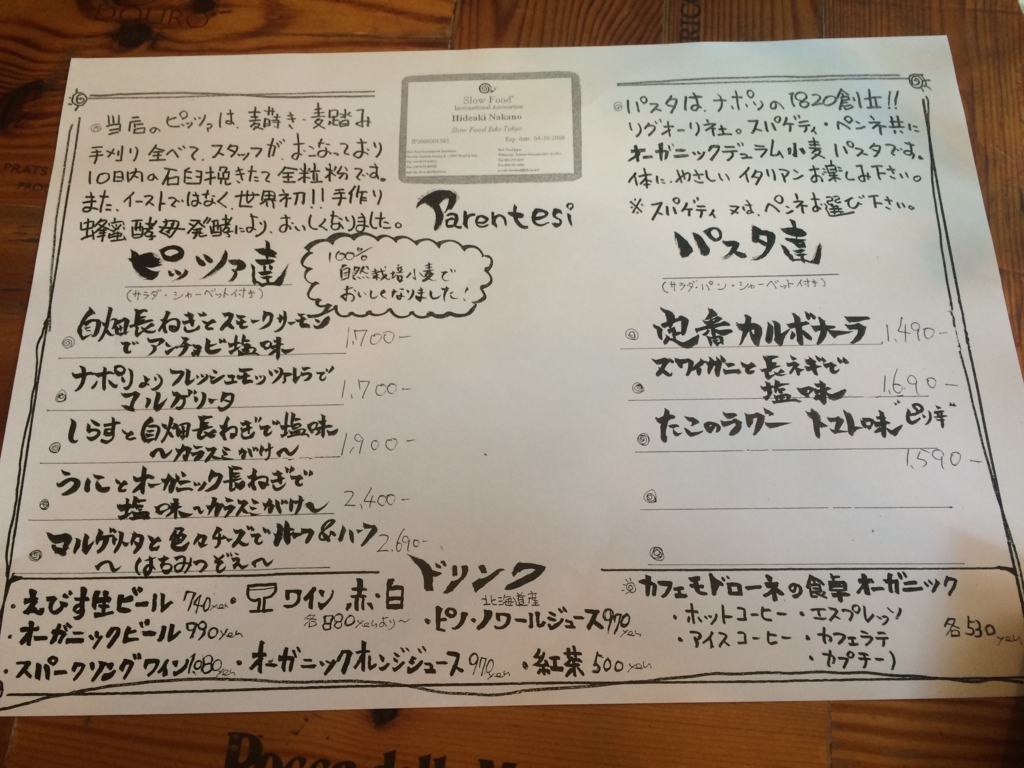 DOURO
PRATS
当店のピッツァは、麦蒔き・麦踏み
手刈り全べて、スタッフがおこなっており
10日内の石臼挽きたて全粒粉です。
また、イーストではなく、世界初!!手作り
蜂蜜酵母発酵により、おいしくなりました。
Slow Food®
International Association
Hideaki Nakano
Slow Food Edo Tokyo
Parentesi
パスタは、ナポリの1820創立!!
リグオーリ社。スパゲティ・ペンネ共に
オーガニックデュラム小麦パスタです。
体に、やさしいイタリアンお楽しみ下さい。
※スパゲティ又は、ペンネお選び下さい。
ピッツァ達
(サラダ・シャーベット付き)
100%
自然栽培小麦で
おいしくなりました!
自畑長ねぎとスモークサーモン
でアンチョビ塩味 1,700-
ナポリよりフレッシュモッツァレラで
マルゲリータ 1,700-
しらすと自畑長ねぎで塩味
〜カラスミがけ〜 1,900-
うにとオーガニック長ねぎで
塩味〜カラスミがけ〜 2,400-
マルゲリータと色々チーズでハーフ&ハーフ 2,690-
〜はちみつぞえ〜
パスタ達
(サラダ・パン・シャーベット付き)
定番カルボナーラ 1,490-
ズワイガニと長ネギで
塩味 1,690-
たこのラグー トマト味"ピリ辛"
1,590-
ドリンク
・えびす生ビール 740yen
・ワイン 赤・白
各880yenより〜
・オーガニックビール 990yen
北海道産
・ピノ・ノワールジュース 970yen
・スパークリングワイン 1,080yen
・オーガニックオレンジジュース 970yen
・紅茶 500yen
カフェモドローネの食卓オーガニック
・ホットコーヒー ・エスプレッソ
・アイスコーヒー ・カフェラテ
・カプチーノ
各530yen